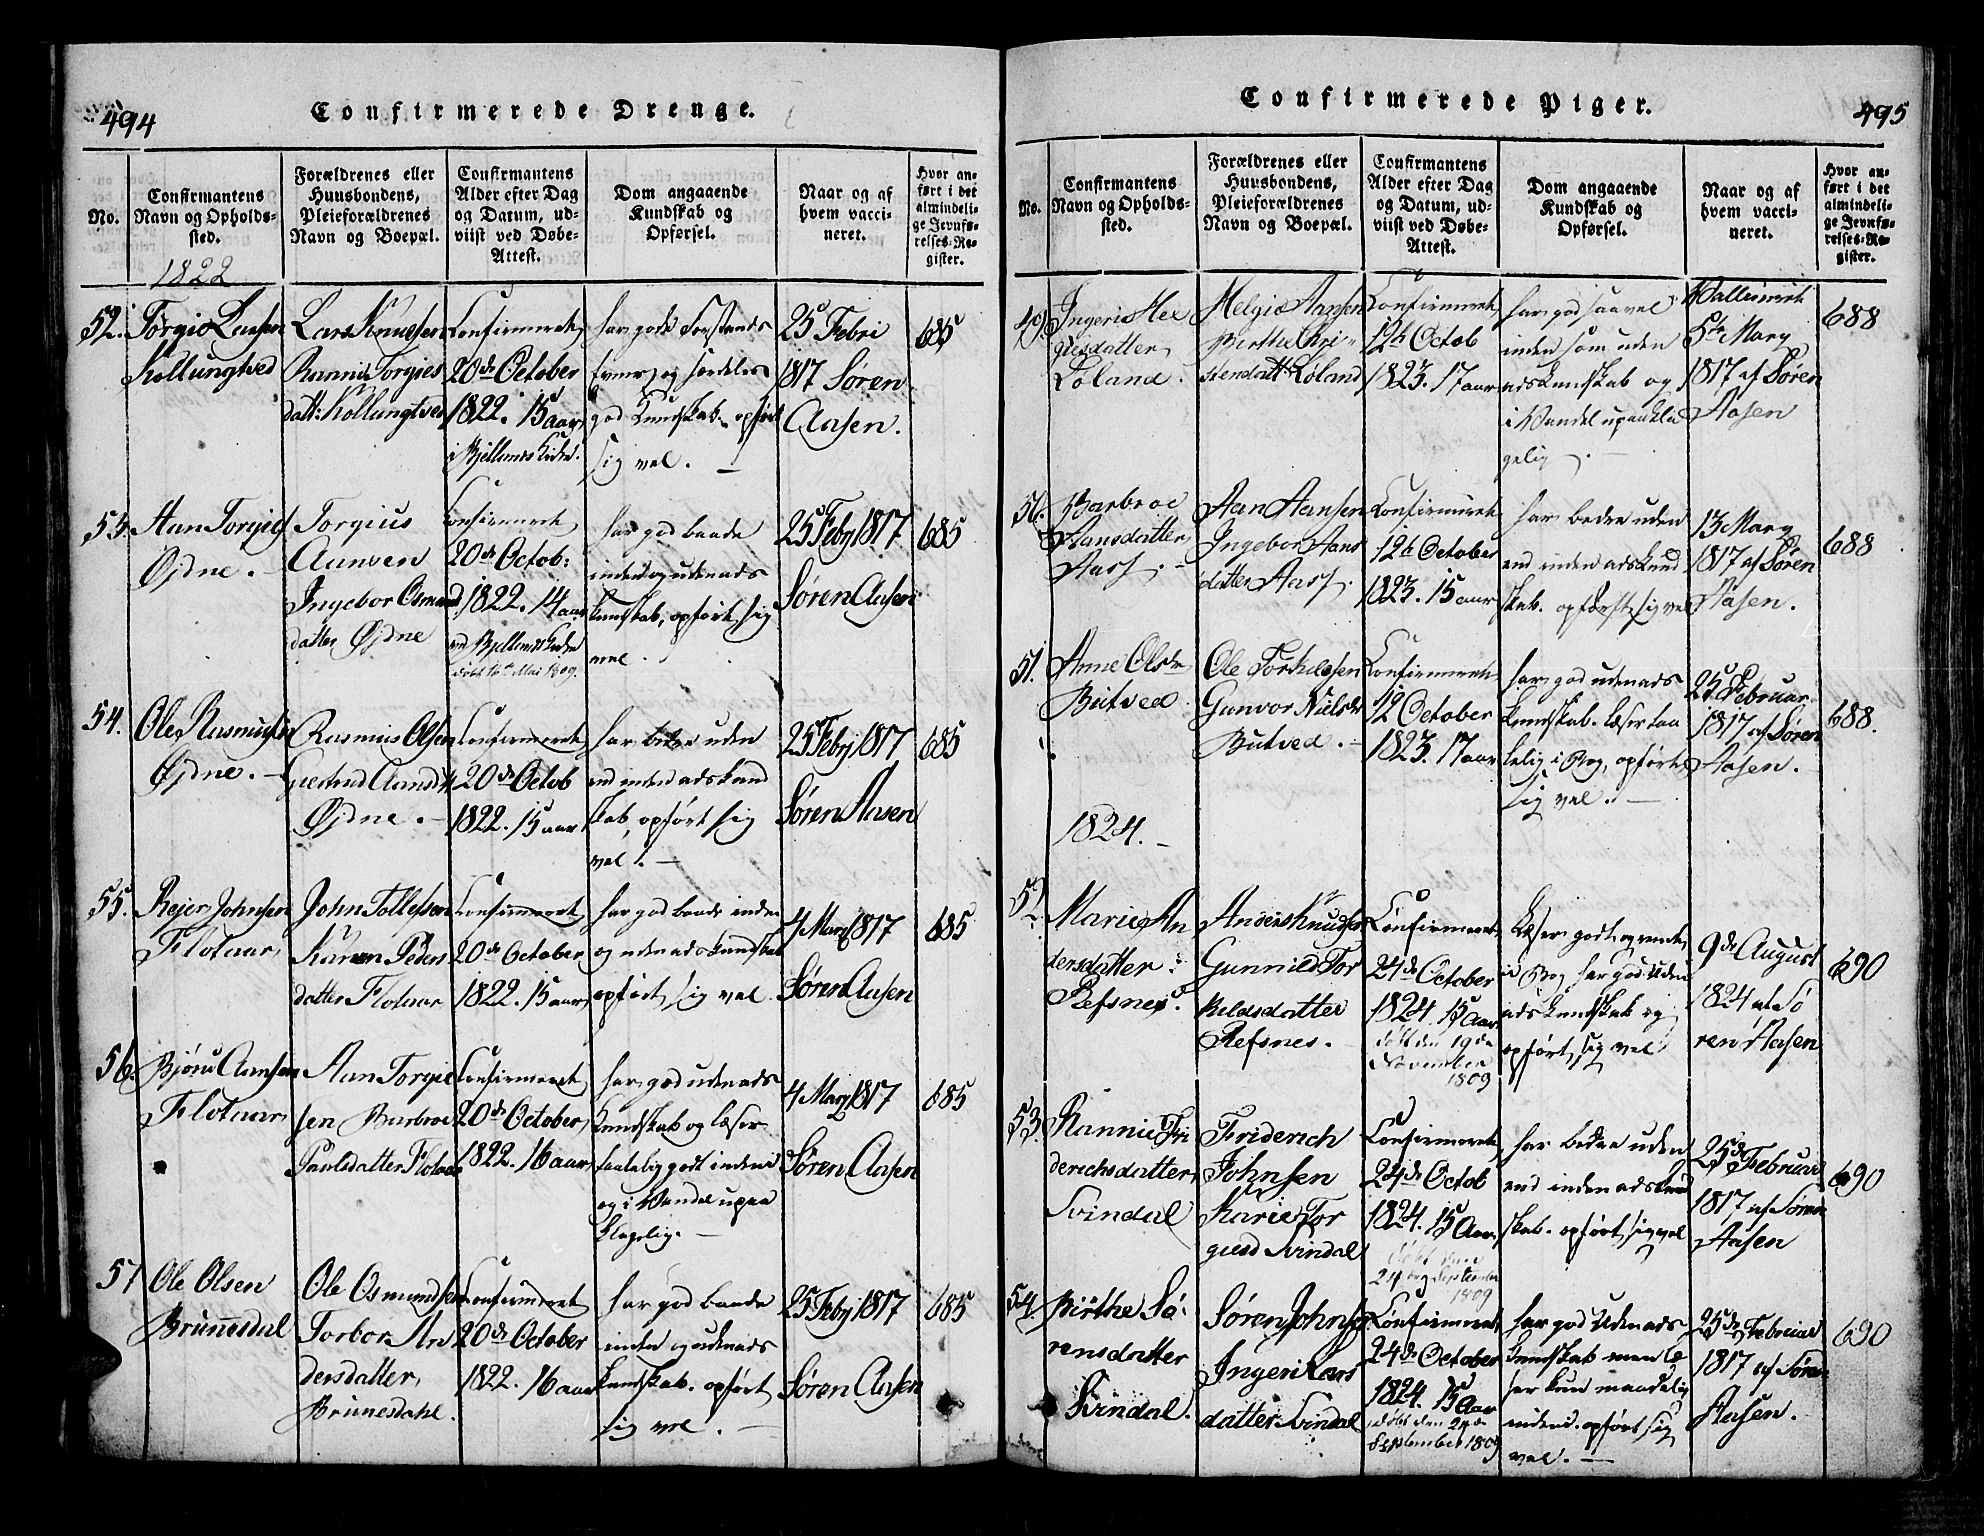 494
Confirmerede Drenge.
No.
Confirmantens
Navn og Opholds-
sted.
Forældrenes eller
Huusbondens,
Pleieforældrenes
Navn og Boepæl.
Confirmantens
Alder efter Dag
og Datum, ud-
viist ved Døbe-
Attest.
Dom angaaende
Kundskab og
Opførsel.
Naar og af
hvem vacci-
neret.
Hvor an-
ført i det
almindeli-
ge Jevnfø-
relses-Re-
gister.
1822
52.
Torgis Larsen
Kollungtved
Lars Knudsen
Rannie Torgies
datt: Kollungtved
Confirmeret
20de October
1822. 15 aar
i Bjellems Kirke.
har gode Forstands
Evner, og særdeles
god Kundskab, opført
sig vel.
25 Febri
1817 Søren
Aasen.
685
53.
Aan Torgies
Øidne.
Torgius
Aanven
Ingebor Osmund
datter Øidne
Confirmeret
20de Octob:
1822. 14 aar
ved Bjellems Kirke
døbt 16de Mai 1809.
har god baade
inden og udenads
kundskab, opført sig
vel.
25 Feby 1817
Søren Aasen
685
54.
Ole Rasmusen
Øidne.
Rasmus Olsen
Giertrud Aansd
Øidne.
Confirmeret
20de Octob
1822. 15 aar
har bedre uden
end inden ads kund
skab, opført sig
vel.
25 Feby 1817
Søren Aasen
685
55.
Rejer Johnsen
Flotaar
John Tollefsen
Karen Peders
datter Flotaar
Confirmeret
20de October
1822. 15 aar
har god baade inden
og udenads kundskab
opført sig vel
4 Marz 1817
Søren Aasen
685
56.
Bjørn Aansen
Flotaar
Aan Torgie
sen Barbroe
Paulsdatter Flotaar
Confirmeret
20de October
1822. 16 aar
har god udenads
Kundskab og læser
saalelig godt inden
og i Vandel upaa
klagelig.
4 Marz 1817
Søren Aasen
685
57
Ole Olsen
Brunesdal
Ole Osmundsen
Torbor An
dersdatter
Brunesdahl.
Confirmeret
20de October
1822. 16 aar
har god baade
inden og udenads
Kundskab. opført
sig vel.
25 Feby 1817
Søren Aasen
685
Confirmerede Piger.
495
No.
Confirmantens
Navn og Opholds-
sted.
Forældrenes eller
Huusbondens,
Pleieforældrenes
Navn og Boepæl.
Confirmantens
Alder efter Dag
og Datum, ud-
viist ved Døbe-
Attest.
Dom angaaende
Kundskab og
Opførsel.
Naar og af
hvem vacci-
neret.
Hvor an-
ført i det
almindeli-
ge Jevnfø-
relses-Re-
gister.
49.
Ingeris Hel
giesdatter
Loland.
Helgie Aansen
Berthe Chri-
stensdatt Loland
Confirmeret
12te Octob
1823. 17 aar
har god saavel
inden som uden
ads kundskab og
i Vandel upaakla
gelig.
5te Marz
1817 af Søren
Aasen
688
50.
Barbroe
Aansdatter
Aass.
Aan Aansen
Ingebor Aans
datter Aass.
Confirmeret
12te October
1823. 15 aar
har bedre uden
end inden ads kund
skab. opført sig vel
13 Marz
1817 af Søren
Aasen.
688
51.
Anne Olsdr
Butved
Ole Torkelsen
Gunvor Nielsdr
Butved.
Confirmeret
12 October
1823. 17 aar
har god udenads
Kundskab. læser taa
lelig i Bog, opført
sig vel.
25 Februar
1817 af Søren
Aasen.
688.
1824.
52
Marie An
dersdatter
Refsnes.
Anders Knudsen
Gunnild Tor
kildsdatter
Refsnes.
Confirmeret
24de October
1824. 15 Aar
døbt den 19de
November
1809
Læser godt og rent
i Bog har god uden
ads Kundskab og
opført sig vel
9de August
1824 af Sø
ren Aasen
690
53.
Rannie Fri
derichsdatter
Svindal
Friderich
Johnsen
Karie Tor
giesd Svindal
Confirmeret
24de Octob
1824. 15 Aar
døbt den
24 dag September
1809
har bedre uden
end inden ads kund
skab. opført sig vel
25de Februar
1817 af Søren
Aasen
690
54.
Birthe Sø-
rensdatter
Svindal.
Søren Johnsen
Ingeri Lars
datter Svindal
Confirmeret
24de October
1824. 15 Aar
døbt den 24de
September 1809
har god Udenads
Kundskab men læ
ser kun maadelig
inden. opført sig
vel.
25de Februar
1817 af Søren
Aasen.
690